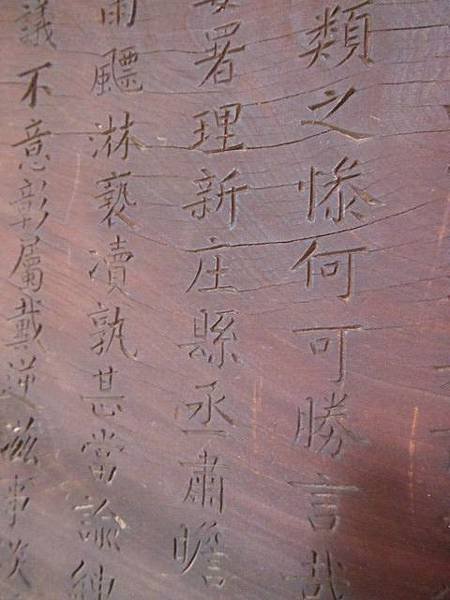 類之慘何可勝言哉
署理新庄縣丞肅瞻
雨飃淋褻瀆孰甚當諭紳
議不意彰屬戴逆滋事淡